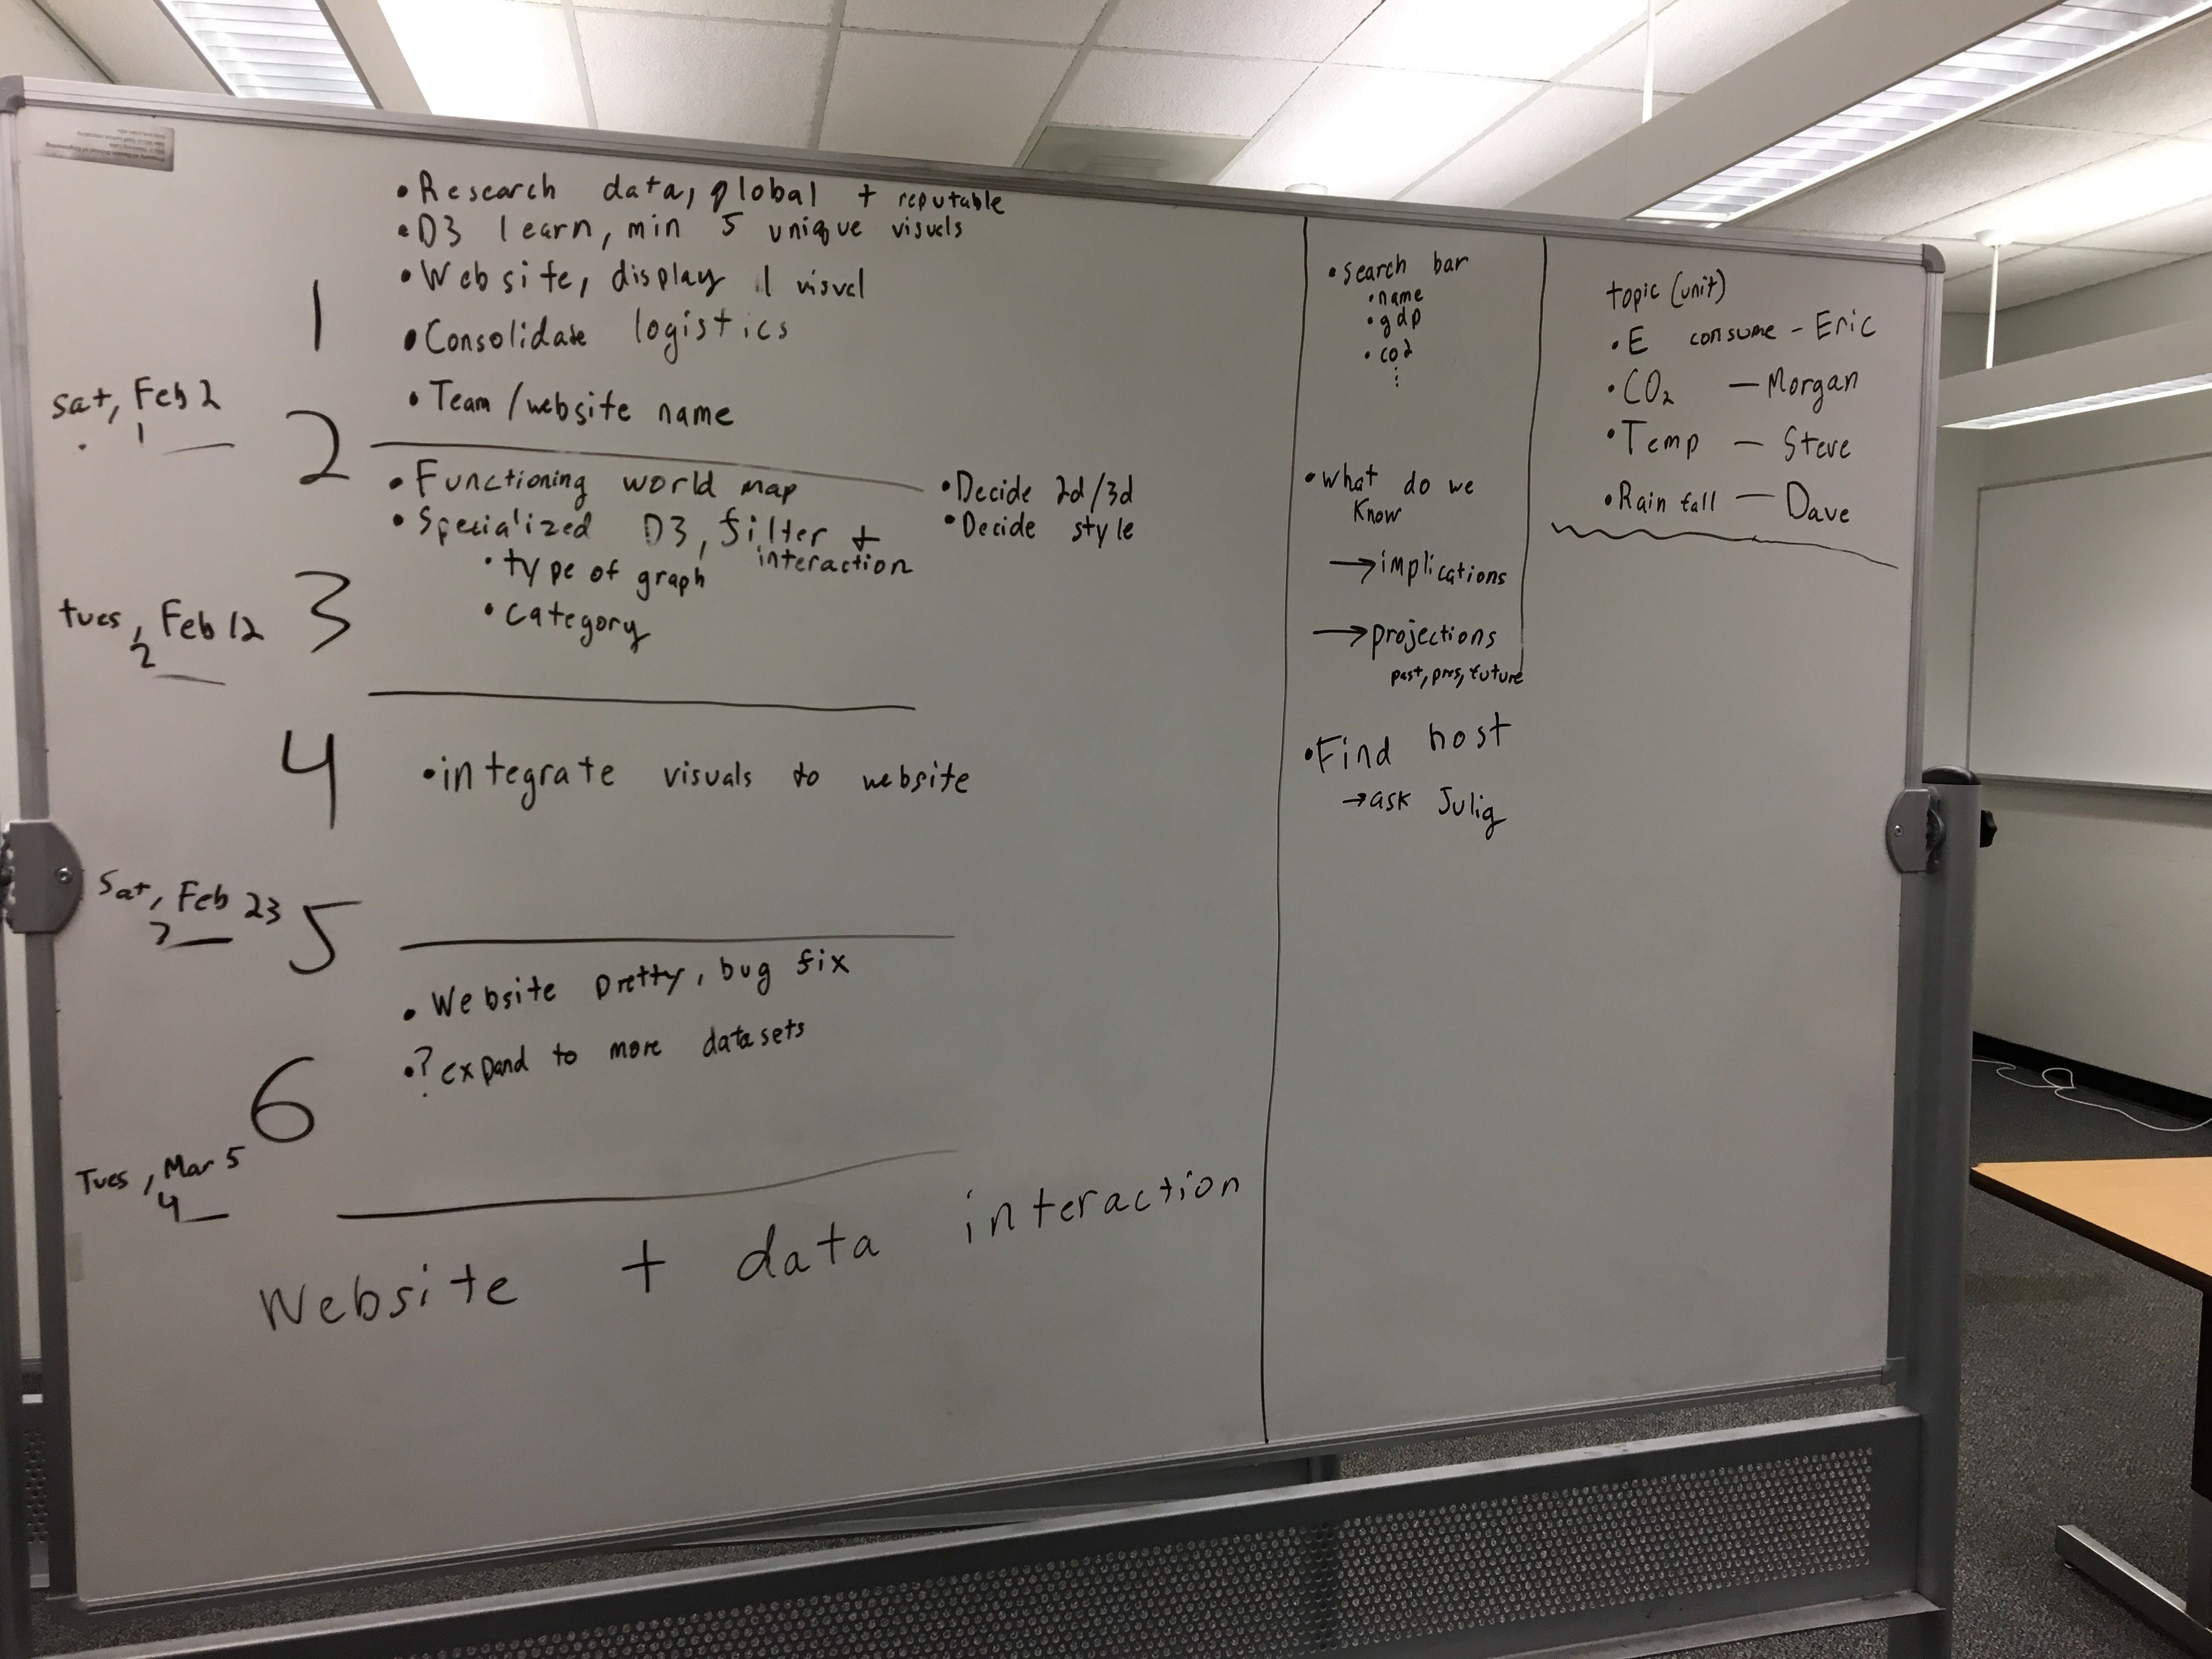 • Research data, global + reputable
• D3 learn, min 5 unique visuals
• Website, display 1 visual
1
• Consolidate logistics
• Team/website name
Sat, Feb 2
1
2
• Functioning world map
• Specialized D3, filter +
interaction
• type of graph
• category
• Decide 2d/3d
• Decide style
3
tues, Feb 12
2
4
• integrate visuals to website
Sat, Feb 23
3
5
• Website pretty, bug fix
• ? expand to more datasets
6
Tues, Mar 5
4
Website + data interaction
• search bar
• name
• gdp
• co2
⋮
• what do we
know
→ implications
→ projections
past, pres, future
• Find host
→ ask Julig
topic (unit)
• E consume - Eric
• CO₂ — Morgan
• Temp — Steve
• Rain fall — Dave